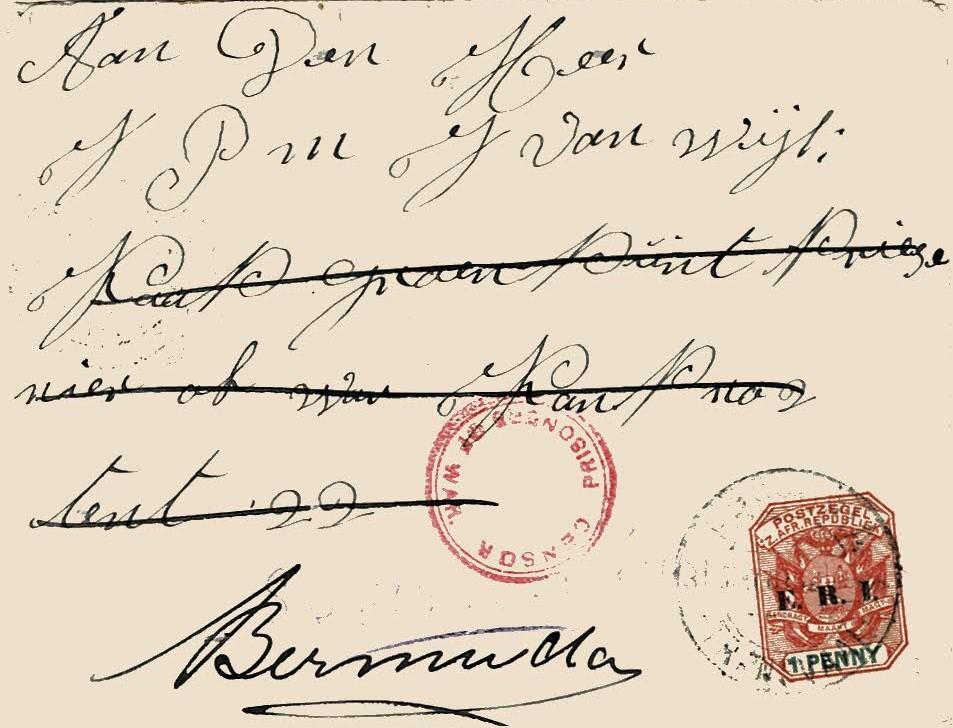 Aan Den Heer
J P m J van wijk
Kaap groen Puint Priege
nier of war Kamp no 2
tent 22
Bermuda
PRISONERS OF WAR
CENSOR
POSTZEGEL
Z. AFR. REPUBLIEK
E. R. I.
EENDRAGT MAAKT MAGT
1 PENNY